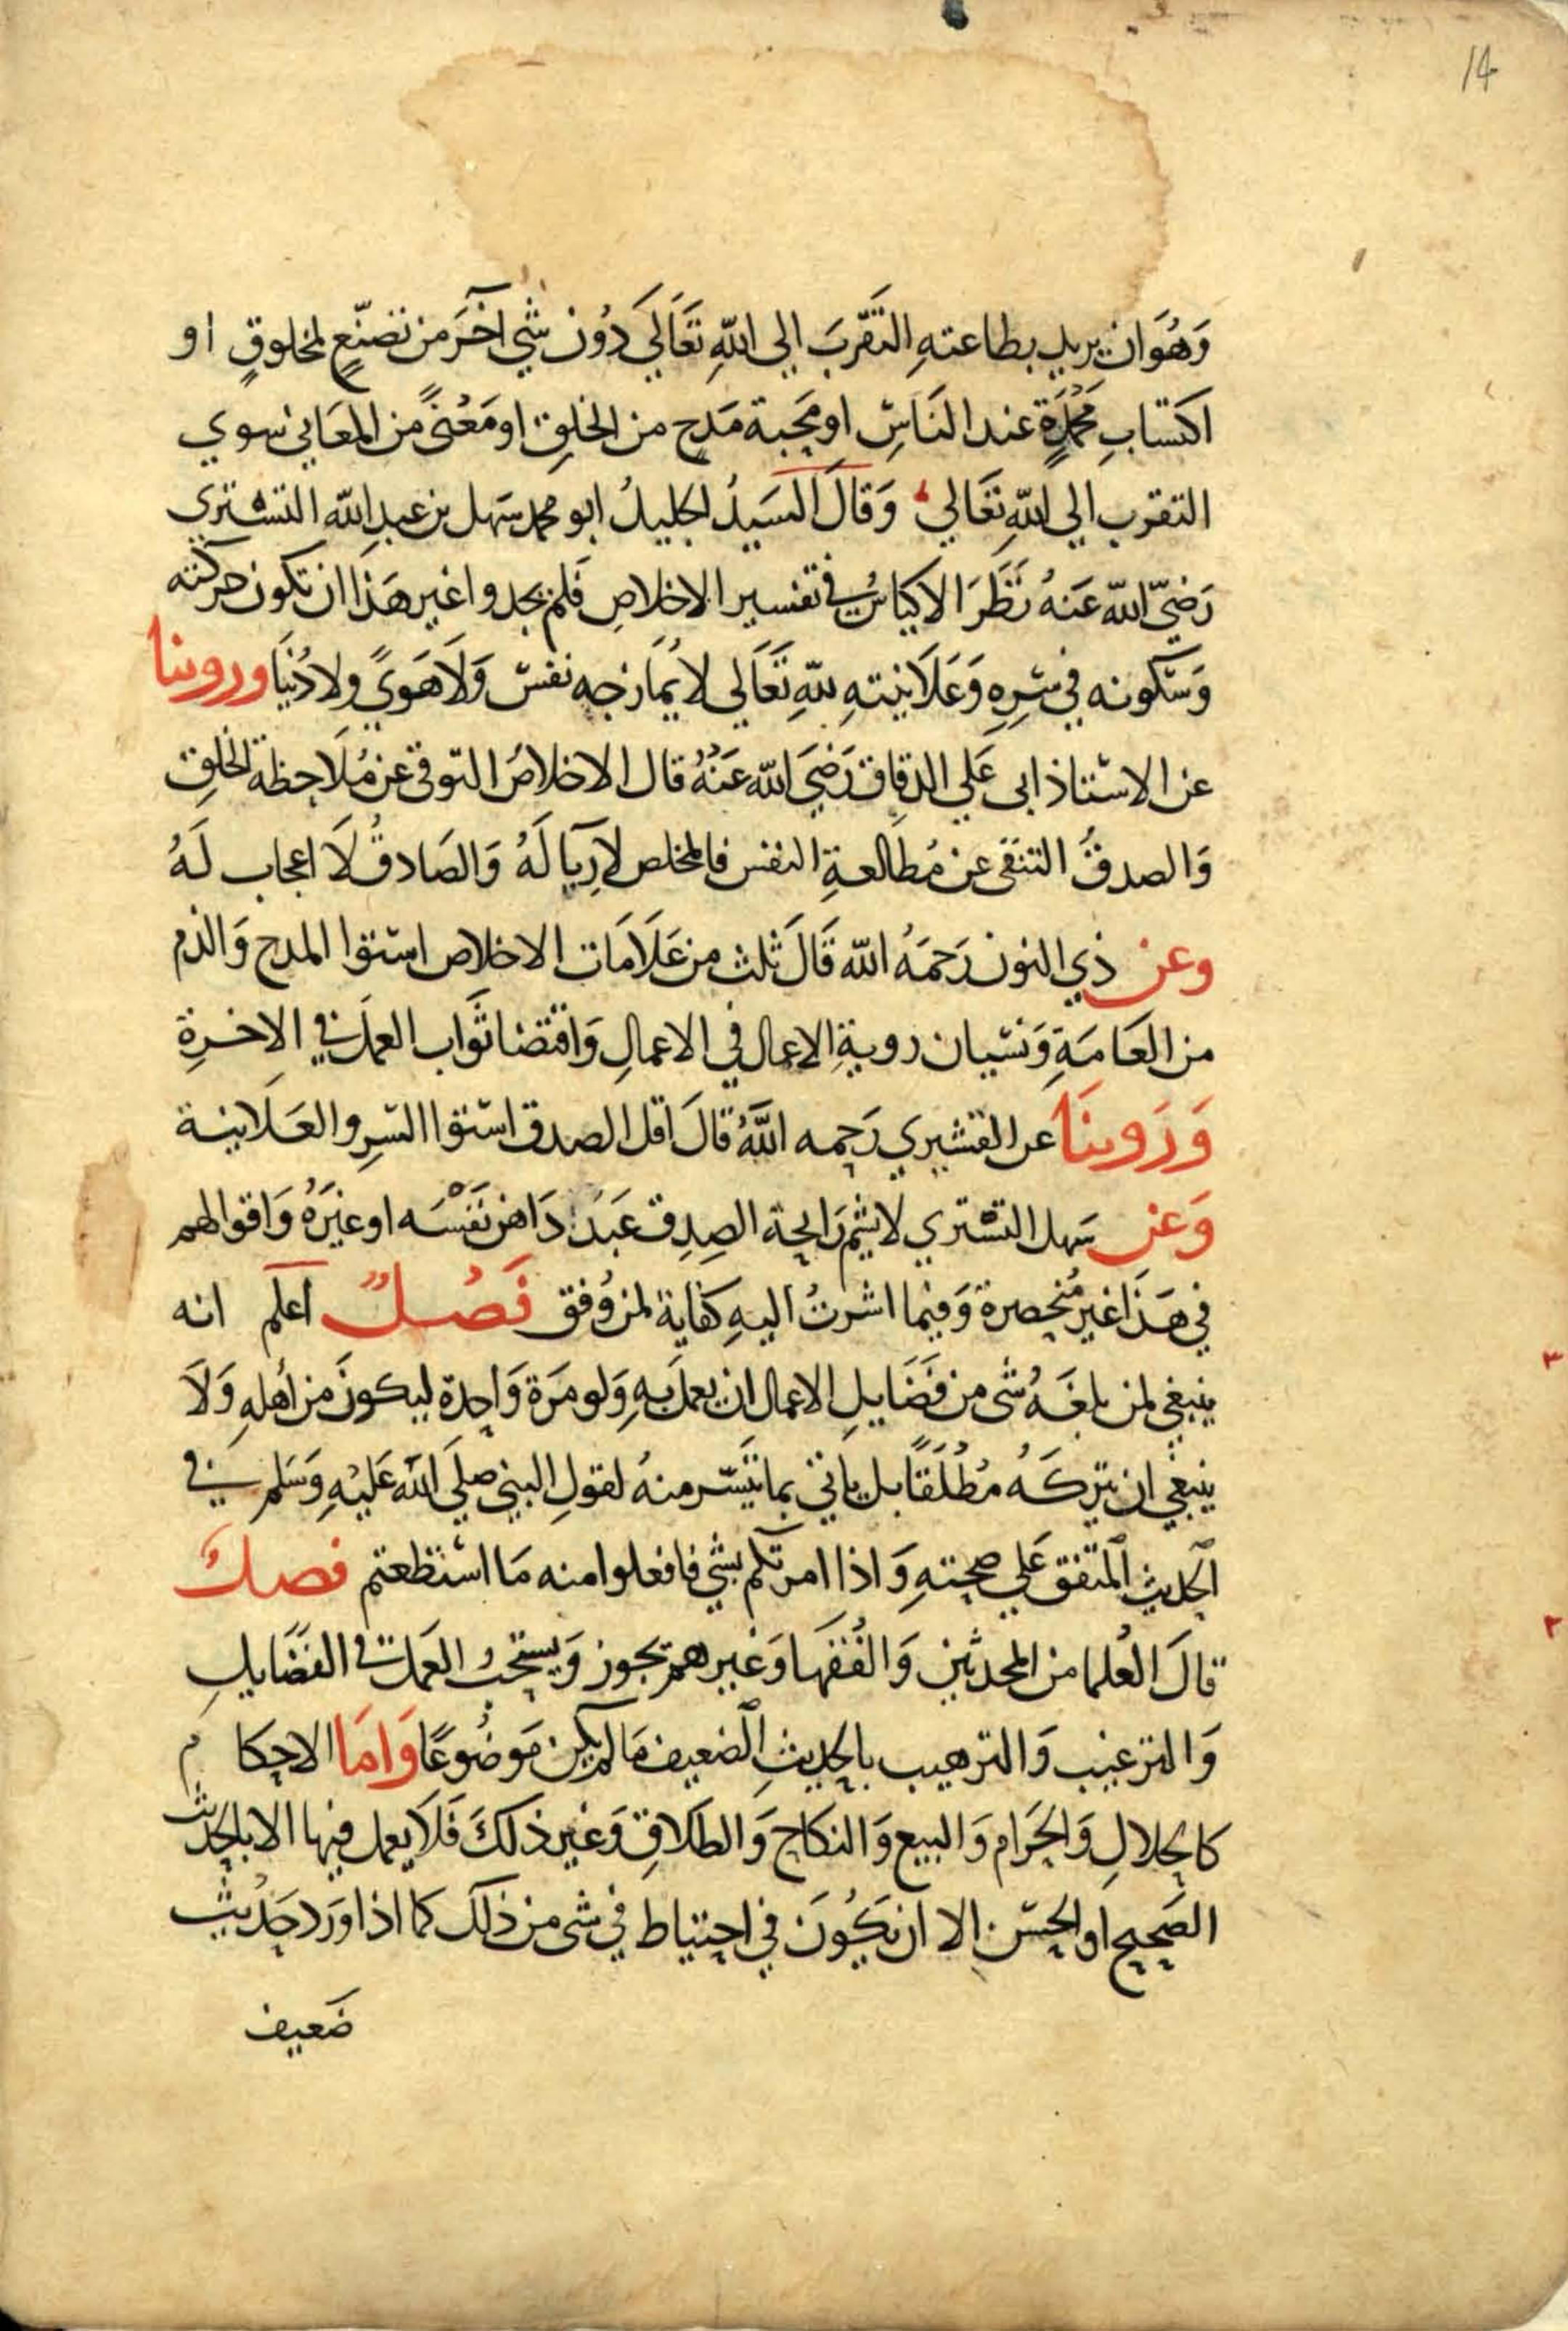 14
وَهُوَ ان يريد بطاعتهِ التقَرّبَ الى اللهِ تعَالَى دُون شيٍ اخَرَ من تصَنّعٍ لمخلوقٍ او
اكتسَابِ مَحْمَدَةٍ عند النَاسِ او مَحَبة مَدحٍ من الخلق او مَعْنىً من المعَاني سوي
التقرب الي اللهِ تعَالي وَقالَ السَيدُ الجليلُ ابو محمد سَهل بن عبدِ الله التسْتري
رَضيَ الله عَنهُ نَظَرَ الاكيَاسُ في تفسير الاخلاصِ فَلم يجدوا غير هَذا ان تكون حركته
وَسكونه في سِرهِ وَعَلَانيتهِ للهِ تَعَالي لا يُمَازجه نفسٌ وَلَا هَوىً ولا دُنيَا وروينا
عن الاستاذ ابى عَلي الدقاق رَضيَ الله عَنْهُ قال الاخلاصُ التوقي عن مُلَاحظة الخلق
وَالصدقُ التنقى عن مُطالعةِ النفس فالمخلص لا رِيَا لَهُ وَالصَادقُ لَا اعجاب لَهُ
وعن ذي النون رَحمَهُ الله قَالَ ثلث من عَلَامَات الاخلاص استوا المدح وَالذم
من العَامَةِ وَنسْيان روية الاعمال في الاعمالِ وَاقتضا ثَواب العمَل في الاخرةِ
وَرَوينَا عن القشيري رَحمه اللهُ قالَ اقل الصدق استوا السِر والعَلَانية
وَعن سَهل التستري لا يشم رَايحة الصِدق عَبدٌ دَاهن نَفْسَه او غيرَهُ وَاقوالهم
في هَذَا غير مُنحصرة وَفيما اشرتُ اليهِ كفاية لمن وُفق فَصْلٌ اعلم انه
ينبغي لمن بلغَهُ شى من فَضَايلِ الاعمال ان يعمل بهِ وَلو مَرَة وَاحدة ليكونَ من اهلهِ وَلَا
ينبغي ان يتركَهُ مُطْلَقًا بل ياتي بما تيَسّر منهُ لقولِ النبي صلي الله عَليْهِ وَسَلم في
الحديث المتفق عَلي صحتهِ وَاذا امرتكم بشي فافعلوا منه مَا استطعتم فصل
قالَ العُلما من المحدثين وَالفُقهَا وَغيرهم يجوز وَيستحبُ العمَل في الفضَايلِ
وَالترغيب وَالترهيب بالحديثِ الضعيف مَا لم يكن مَوضُوعًا وَامَا الاحكام
كالحلالِ وَالحَرَام وَالبيع وَالنكاح وَالطَلاقِ وَغير ذلكَ فَلَا يعمل فيها الا بالحديث
الصَحيح او الحسَن الا ان يَكُونَ في احتياط في شى من ذلك كما اذا وَرَد حَديث
ضَعيف
٣
٣